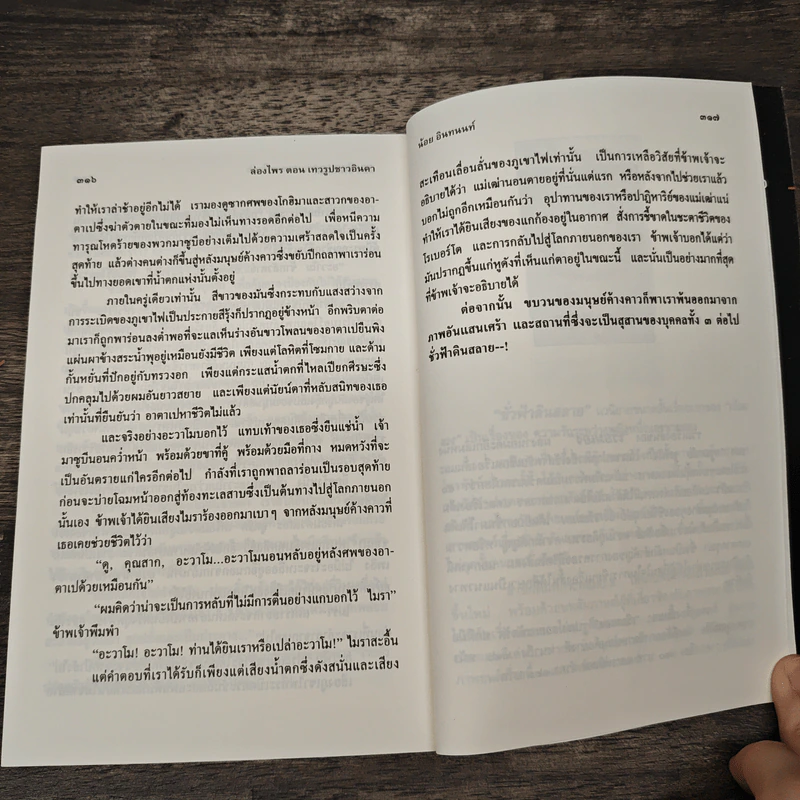 ๓๑๖
ล่องไพร ตอน เทวรูปชาวอินคา
ทำให้เราล่าช้าอยู่อีกไม่ได้ เรามองดูซากศพของโกฮิมาและสาวกของอา-
ตาเปซึ่งฆ่าตัวตายในขณะที่มองไม่เห็นทางรอดอีกต่อไป เพื่อหนีความ
ทารุณโหดร้ายของพวกมาซูบีอย่างเต็มไปด้วยความเศร้าสลดใจเป็นครั้ง
สุดท้าย แล้วต่างคนต่างก็ขึ้นสู่หลังมนุษย์ค้างคาวซึ่งขยับปีกถลาพาเราร่อน
ขึ้นไปทางยอดเขาที่น้ำตกแห่งนั้นตั้งอยู่
ภายในครู่เดียวเท่านั้น สีขาวของมันซึ่งกระทบกับแสงสว่างจาก
การระเบิดของภูเขาไฟเป็นประกายสีรุ้งก็ปรากฏอยู่ข้างหน้า อีกพริบตาต่อ
มาเราก็ถูกพาร่อนลงต่ำพอที่จะแลเห็นร่างอันขาวโพลนของอาตาเปยืนพิง
แผ่นผาข้างสระน้ำพุอยู่เหมือนยังมีชีวิต เพียงแต่โลหิตที่โซมกาย และด้าม
กั้นหยั่นที่ปักอยู่กับทรวงอก เพียงแต่กระแสน้ำตกที่ไหลเปียกศีรษะซึ่ง
ปกคลุมไปด้วยผมอันยาวสยาย และเพียงแต่นัยน์ตาที่หลับสนิทของเธอ
เท่านั้นที่ยืนยันว่า อาตาเปหาชีวิตไม่แล้ว
และจริงอย่างอะวาโมบอกไว้ แทบเท้าของเธอซึ่งยืนแช่น้ำ เจ้า
มาซูบีนอนคว่ำหน้า พร้อมด้วยขาที่คู้ พร้อมด้วยมือที่กาง หมดหวังที่จะ
เป็นอันตรายแก่ใครอีกต่อไป กำลังที่เราถูกพาถลาร่อนเป็นรอบสุดท้าย
ก่อนจะบ่ายโฉมหน้าออกสู่ท้องทะเลสาบซึ่งเป็นต้นทางไปสู่โลกภายนอก
นั้นเอง ข้าพเจ้าได้ยินเสียงไมราร้องออกมาเบาๆ จากหลังมนุษย์ค้างคาวที่
เธอเคยช่วยชีวิตไว้ว่า
“ดู, คุณสาก, อะวาโม...อะวาโมนอนหลับอยู่หลังศพของอา-
ตาเปด้วยเหมือนกัน”
“ผมคิดว่าน่าจะเป็นการหลับที่ไม่มีการตื่นอย่างแกบอกไว้ ไมรา”
ข้าพเจ้าพึมพำ
“อะวาโม! อะวาโม! ท่านได้ยินเราหรือเปล่าอะวาโม!” ไมราสะอื้น
แต่คำตอบที่เราได้รับก็เพียงแต่เสียงน้ำตกซึ่งดังสนั่นและเสียง
น้อย อินทนนท์
๓๑๗
สะเทือนเลื่อนลั่นของภูเขาไฟเท่านั้น เป็นการเหลือวิสัยที่ข้าพเจ้าจะ
อธิบายได้ว่า แม่เฒ่านอนตายอยู่ที่นั่นแต่แรก หรือหลังจากไปช่วยเราแล้ว
บอกไม่ถูกอีกเหมือนกันว่า อุปาทานของเราหรือปาฏิหาริย์ของแม่เฒ่าแน่
ทำให้เราได้ยินเสียงของแกก้องอยู่ในอากาศ สั่งการชี้ขาดในชะตาชีวิตของ
โรเบอร์โต และการกลับไปสู่โลกภายนอกของเรา ข้าพเจ้าบอกได้แต่ว่า
มันปรากฏขึ้นแก่หูดังที่เห็นแก่ตาอยู่ในขณะนี้ และนั่นเป็นอย่างมากที่สุด
ที่ข้าพเจ้าจะอธิบายได้
ต่อจากนั้น ขบวนของมนุษย์ค้างคาวก็พาเราพ้นออกมาจาก
ภาพอันแสนเศร้า และสถานที่ซึ่งจะเป็นสุสานของบุคคลทั้ง ๓ ต่อไป
ชั่วฟ้าดินสลาย--!